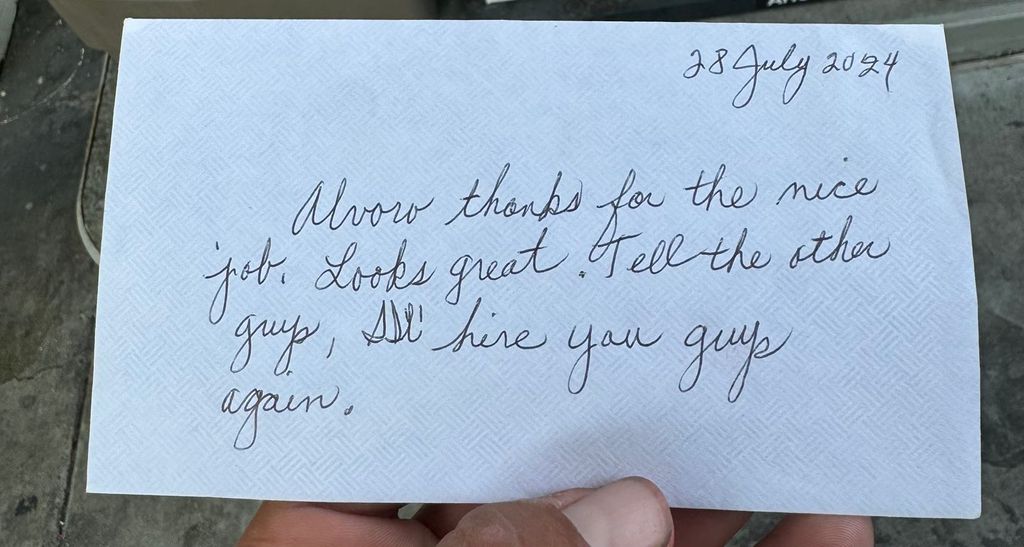 28 July 2024
Alvoro thanks for the nice
job. Looks great. Tell the other
guys, I'll hire you guys
again.